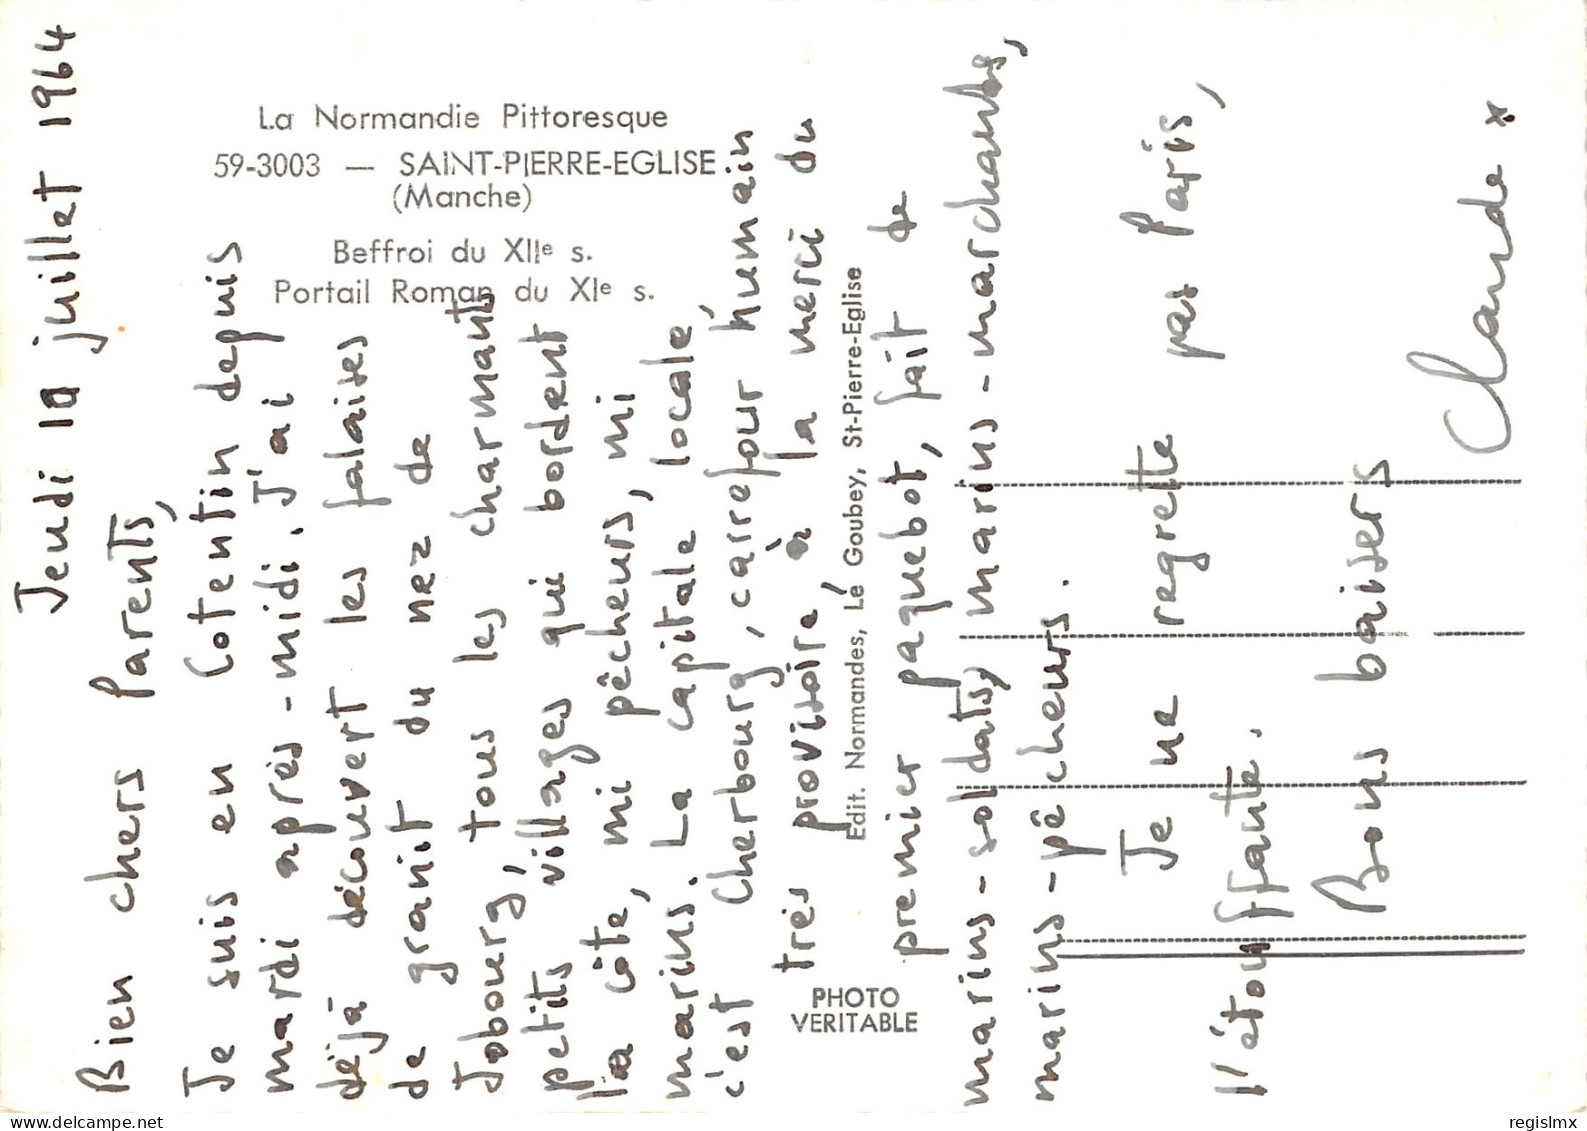 La Normandie Pittoresque
59-3003 — SAINT-PIERRE-EGLISE
(Manche)
Beffroi du XIIe s.
Portail Roman du XIe s.
Edit. Normandes, Le Goubey, St-Pierre-Eglise
PHOTO
VERITABLE
Jeudi juillet 1964
Bien chers Parents,
Je suis en Cotentin depuis
mardi après-midi. J'ai
déjà découvert les falaises
de granit du nez de
Jobourg, tous les charmants
petits villages qui bordent
la côte, mi pêcheurs, mi
marins. La capitale locale,
c'est Cherbourg, carrefour humain
très provisoire, à la merci du
premier paquebot, fait de
marins-soldats, marins-marchands,
marins-pêcheurs.
Je ne regrette pas Paris,
l'étouffante.
Bons baisers
Claude
www.delcampe.net
regislmx